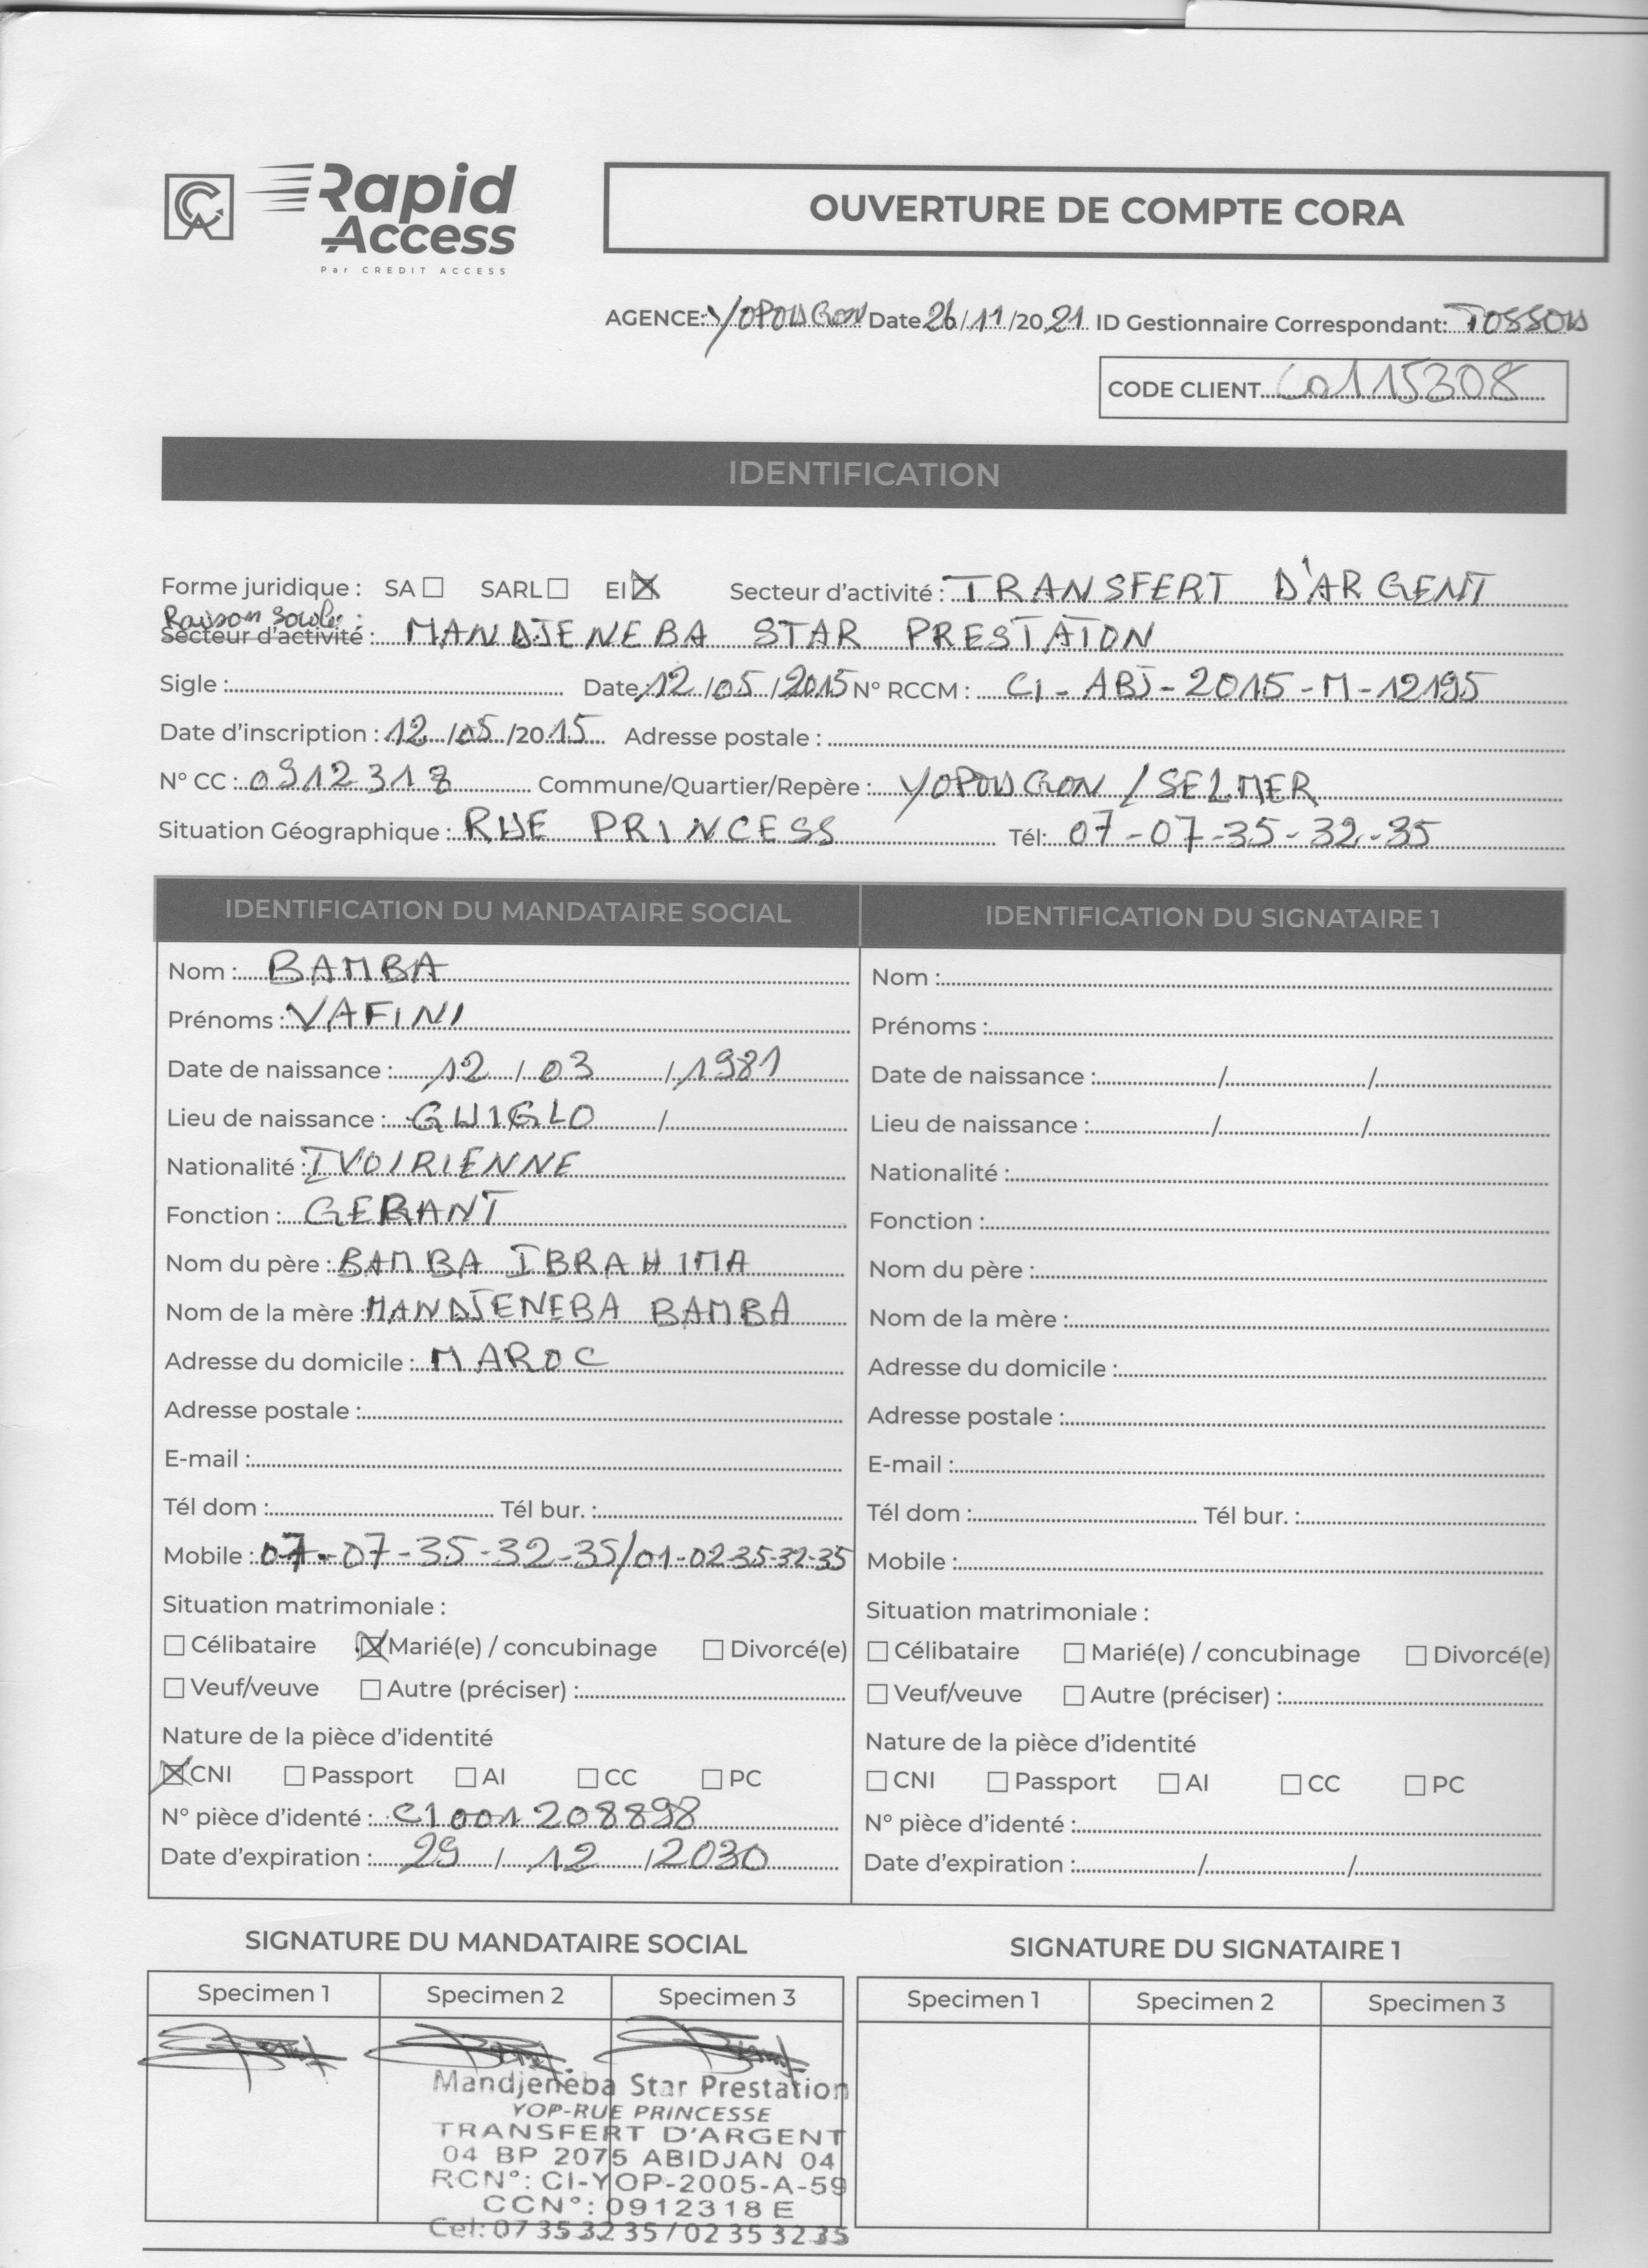 CA Rapid
Access
Par CREDIT ACCESS
OUVERTURE DE COMPTE CORA
AGENCE: YOPOUGON Date 26/11/2021 ID Gestionnaire Correspondant: TOSSOU
CODE CLIENT C0115308
IDENTIFICATION
Forme juridique : SA ☐ SARL ☐ EI ☒ Secteur d'activité : TRANSFERT D'ARGENT
Raison Sociale :
Secteur d'activité : MANDJENEBA STAR PRESTATON
Sigle : Date 12/05/2015 N° RCCM : CI-ABJ-2015-M-12195
Date d'inscription : 12/05/2015 Adresse postale :
N° CC : 0912318 Commune/Quartier/Repère : YOPOUGON / SELMER
Situation Géographique : RUE PRINCESS Tél: 07-07-35-32-35
IDENTIFICATION DU MANDATAIRE SOCIAL IDENTIFICATION DU SIGNATAIRE 1
Nom : BAMBA Nom :
Prénoms : VAFINI Prénoms :
Date de naissance : 12/03/1981 Date de naissance : / /
Lieu de naissance : GUIGLO / Lieu de naissance : / /
Nationalité : IVOIRIENNE Nationalité :
Fonction : GERANT Fonction :
Nom du père : BAMBA IBRAHIMA Nom du père :
Nom de la mère : MANDJENEBA BAMBA Nom de la mère :
Adresse du domicile : MAROC Adresse du domicile :
Adresse postale : Adresse postale :
E-mail : E-mail :
Tél dom : Tél bur. : Tél dom : Tél bur. :
Mobile : 07-07-35-32-35/01-02-35-32-35 Mobile :
Situation matrimoniale : Situation matrimoniale :
☐ Célibataire ☒ Marié(e) / concubinage ☐ Divorcé(e) ☐ Célibataire ☐ Marié(e) / concubinage ☐ Divorcé(e)
☐ Veuf/veuve ☐ Autre (préciser) : ☐ Veuf/veuve ☐ Autre (préciser) :
Nature de la pièce d'identité Nature de la pièce d'identité
☒ CNI ☐ Passport ☐ AI ☐ CC ☐ PC ☐ CNI ☐ Passport ☐ AI ☐ CC ☐ PC
N° pièce d'identé : C1001208898 N° pièce d'identé :
Date d'expiration : 29/12/2030 Date d'expiration : / /
SIGNATURE DU MANDATAIRE SOCIAL SIGNATURE DU SIGNATAIRE 1
Specimen 1 Specimen 2 Specimen 3 Specimen 1 Specimen 2 Specimen 3
Mandjeneba Star Prestation
YOP-RUE PRINCESSE
TRANSFERT D'ARGENT
04 BP 2075 ABIDJAN 04
RCN°: CI-YOP-2005-A-59
CCN°: 0912318 E
Cel: 07 35 32 35 / 02 35 32 35